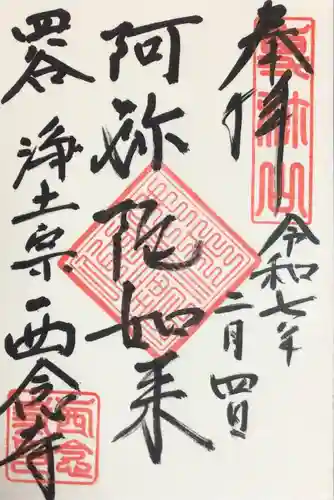 奉拝
令和七年
二月四日
阿弥陀如来
四谷
浄土宗
西念寺
西念